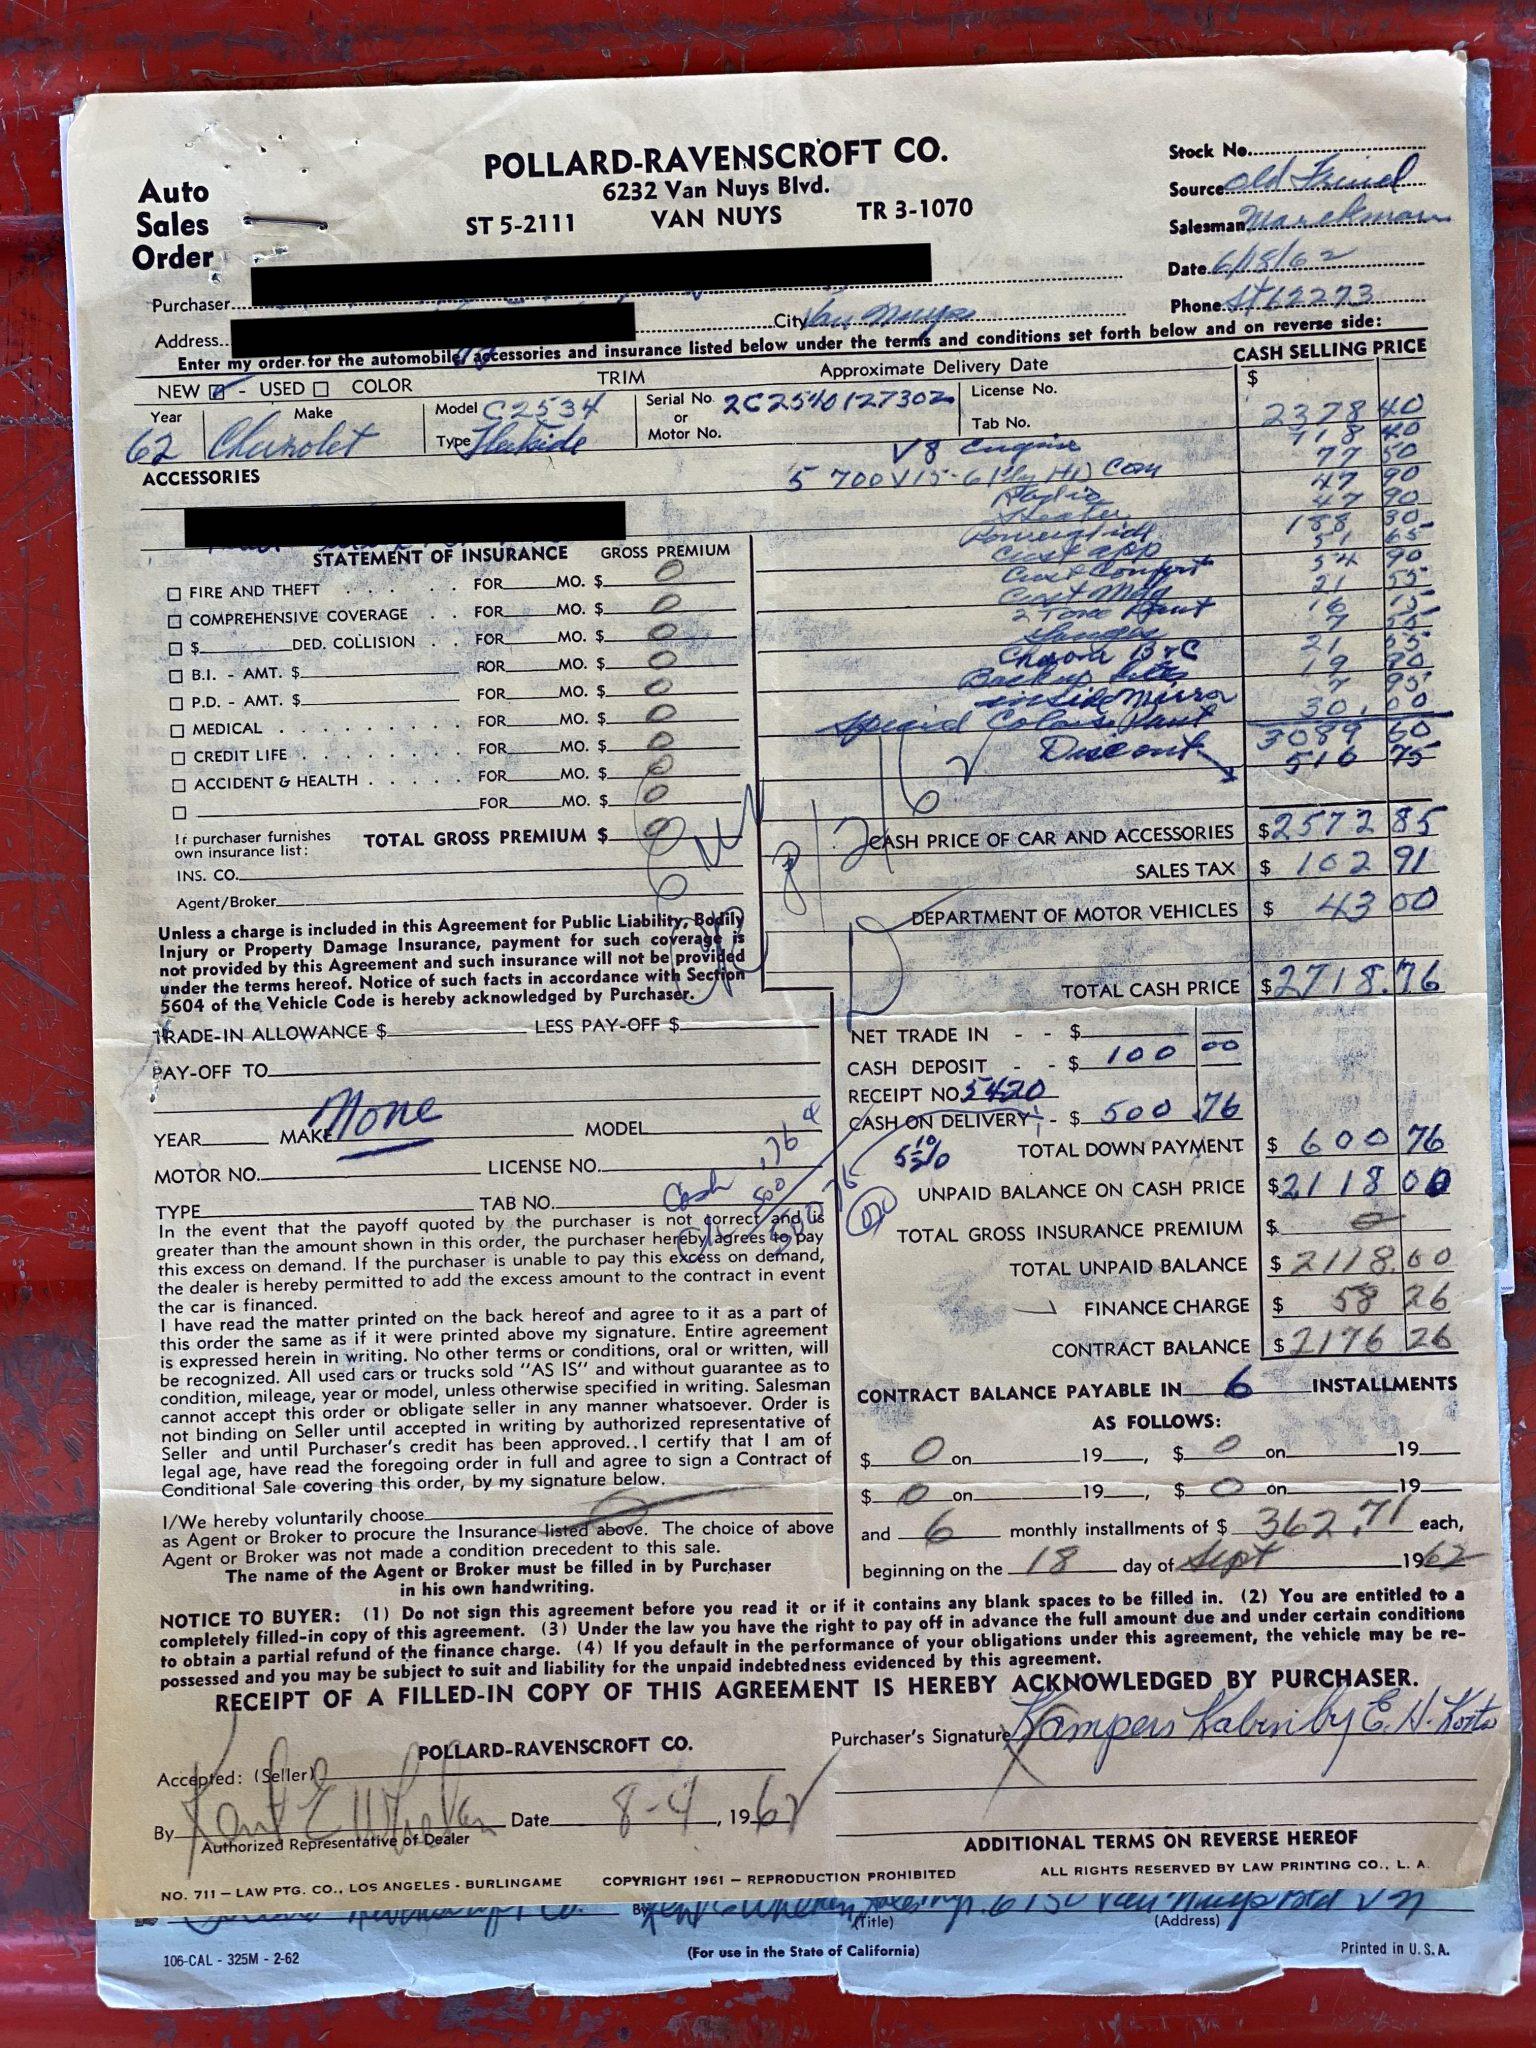 POLLARD-RAVENSCROFT CO.
6232 Van Nuys Blvd.
ST 5-2111 VAN NUYS TR 3-1070
Auto
Sales
Order
Stock No.
Source Old Friend
Salesman Marckmann
Date 6/18/62
Phone St 62273
Purchaser
Address City Van Nuys
Enter my order for the automobile, accessories and insurance listed below under the terms and conditions set forth below and on reverse side:
NEW ☑ - USED ☐ COLOR TRIM Approximate Delivery Date CASH SELLING PRICE
Year 62 Make Chevrolet Model C2534 Type Fleetside Serial No. or Motor No. 2C2540127302 License No. Tab No. $ 2378 40
ACCESSORIES
V8 Engine 118 40
5 700 V15-6 Ply HD Com 77 50
Radio 47 90
Heater 47 90
Powerglide 188 30
Cust app 51 65
Cust Comfort 54 90
21 55
2 Tone Paint 16 15
Chrom B & C 21 55
Back up
inside Mirror
Special Colors Paint 30.00
3089 60
Discount 516 75
STATEMENT OF INSURANCE GROSS PREMIUM
☐ FIRE AND THEFT . . . . . FOR MO. $ 0
☐ COMPREHENSIVE COVERAGE . . FOR MO. $ 0
☐ $ DED. COLLISION . . FOR MO. $ 0
☐ B.I. - AMT. $ FOR MO. $ 0
☐ P.D. - AMT. $ FOR MO. $ 0
☐ MEDICAL . . . . . . . . FOR MO. $ 0
☐ CREDIT LIFE . . . . . . . FOR MO. $ 0
☐ ACCIDENT & HEALTH . . . . . FOR MO. $ 0
☐ FOR MO. $ 0
If purchaser furnishes
own insurance list: TOTAL GROSS PREMIUM $ 0
INS. CO.
Agent/Broker
Unless a charge is included in this Agreement for Public Liability, Bodily
Injury or Property Damage Insurance, payment for such coverage is
not provided by this Agreement and such insurance will not be provided
under the terms hereof. Notice of such facts in accordance with Section
5604 of the Vehicle Code is hereby acknowledged by Purchaser.
CASH PRICE OF CAR AND ACCESSORIES $ 2572 85
SALES TAX $ 102 91
DEPARTMENT OF MOTOR VEHICLES $ 43 00
TOTAL CASH PRICE $ 2718.76
TRADE-IN ALLOWANCE $ LESS PAY-OFF $
PAY-OFF TO
YEAR MAKE None MODEL
MOTOR NO. LICENSE NO.
TYPE TAB NO.
Cash
NET TRADE IN - - $
CASH DEPOSIT - - $ 100 00
RECEIPT NO. 5420
CASH ON DELIVERY - $ 500.76
TOTAL DOWN PAYMENT $ 600 76
UNPAID BALANCE ON CASH PRICE $ 2118 00
TOTAL GROSS INSURANCE PREMIUM $ 0
TOTAL UNPAID BALANCE $ 2118.00
FINANCE CHARGE $ 58 26
CONTRACT BALANCE $ 2176 26
CONTRACT BALANCE PAYABLE IN 6 INSTALLMENTS
AS FOLLOWS:
$ 0 on 19 , $ 0 on 19
$ 0 on 19 , $ 0 on 19
and 6 monthly installments of $ 362.71 each,
beginning on the 18 day of Sept 1962
In the event that the payoff quoted by the purchaser is not correct and is
greater than the amount shown in this order, the purchaser hereby agrees to pay
this excess on demand. If the purchaser is unable to pay this excess on demand,
the dealer is hereby permitted to add the excess amount to the contract in event
the car is financed.
I have read the matter printed on the back hereof and agree to it as a part of
this order the same as if it were printed above my signature. Entire agreement
is expressed herein in writing. No other terms or conditions, oral or written, will
be recognized. All used cars or trucks sold "AS IS" and without guarantee as to
condition, mileage, year or model, unless otherwise specified in writing. Salesman
cannot accept this order or obligate seller in any manner whatsoever. Order is
not binding on Seller until accepted in writing by authorized representative of
Seller and until Purchaser's credit has been approved..I certify that I am of
legal age, have read the foregoing order in full and agree to sign a Contract of
Conditional Sale covering this order, by my signature below.
I/We hereby voluntarily choose
as Agent or Broker to procure the Insurance listed above. The choice of above
Agent or Broker was not made a condition precedent to this sale.
The name of the Agent or Broker must be filled in by Purchaser
in his own handwriting.
NOTICE TO BUYER: (1) Do not sign this agreement before you read it or if it contains any blank spaces to be filled in. (2) You are entitled to a
completely filled-in copy of this agreement. (3) Under the law you have the right to pay off in advance the full amount due and under certain conditions
to obtain a partial refund of the finance charge. (4) If you default in the performance of your obligations under this agreement, the vehicle may be re-
possessed and you may be subject to suit and liability for the unpaid indebtedness evidenced by this agreement.
RECEIPT OF A FILLED-IN COPY OF THIS AGREEMENT IS HEREBY ACKNOWLEDGED BY PURCHASER.
Purchaser's Signature Kampers Kabin by E. H.
POLLARD-RAVENSCROFT CO.
Accepted: (Seller)
By Date 8-4, 1962
Authorized Representative of Dealer
ADDITIONAL TERMS ON REVERSE HEREOF
NO. 711 — LAW PTG. CO., LOS ANGELES - BURLINGAME COPYRIGHT 1961 — REPRODUCTION PROHIBITED ALL RIGHTS RESERVED BY LAW PRINTING CO., L. A.
By 6150 Van Nuys Blvd V N
(Title) (Address)
106-CAL - 325M - 2-62 (For use in the State of California) Printed in U. S. A.